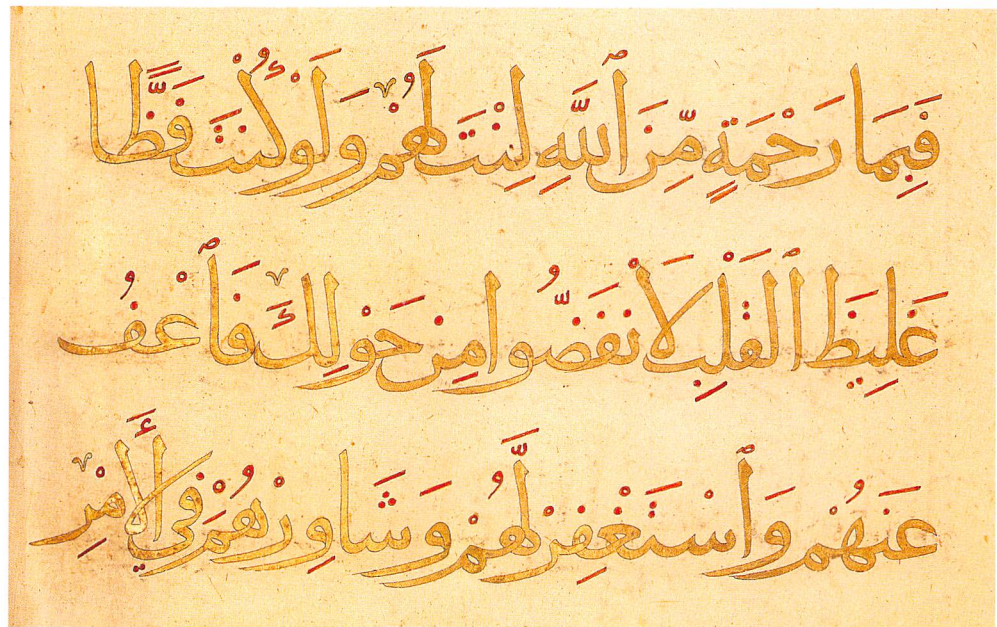 فَبِمَا رَحْمَةٍ مِّنَ ٱللَّهِ لِنْتَ لَهُمْ وَلَوْ كُنْتَ فَظًّا
غَلِيظَ ٱلْقَلْبِ لَأَنفَضُّوا مِنْ حَوْلِكَ فَٱعْفُ
عَنْهُمْ وَٱسْتَغْفِرْ لَّهُمْ وَشَاوِرْهُمْ فِي ٱلْأَمْرِ